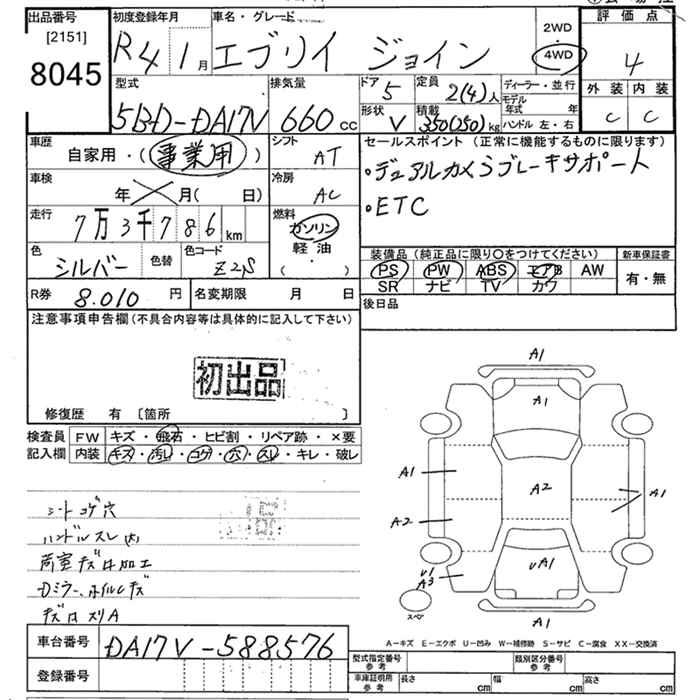 出品番号
[2151]
8045
初度登録年月
R4 1月
車名・グレード
エブリイ ジョイン
2WD
・
4WD
評価点
4
外装 内装
C C
型式
5BD-DA17V
排気量
660 cc
ドア
5
定員
2(4)人
ディーラー・並行
モデル年式 年
形状
V
積載
350(250)kg
ハンドル 左・右
車歴
自家用・(事業用)
シフト
AT
車検
年 月( 日)
冷房
AC
走行
7万3千786km
燃料
ガソリン
軽・油
( ・ )
色
シルバー
色替
色コード
Z2S
R券 8.010 円
名変期限 月 日
セールスポイント(正常に機能するものに限ります)
・デュアルカメラブレーキサポート
・ETC
装備品(純正品に限り〇をつけてください)
新車保証書
PS PW ABS エアB AW
SR ナビ TV カワ
有・無
後日品
注意事項申告欄(不具合内容等は具体的に記入して下さい)
初出品
修復歴 有[箇所 ]
検査員記入欄
FW キズ・飛石・ヒビ割・リペア跡・×要
内装 キズ・汚レ・コゲ・穴・スレ・キレ・破レ
シートコゲ穴
ハンドルスレ
荷室キズ 加工
Dミラー、ホイルキズ
A1
A1
A1
A2
A1
A2
U1
A3
UA1
A1
スペア
A-キズ E-エクボ U-凹み W-補修跡 S-サビ C-腐食 XX-交換済
車台番号
DA17V-588576
登録番号
型式指定番号
参考
類別区分番号
参考
車庫証明用
参考
長さ cm
幅 cm
高さ cm